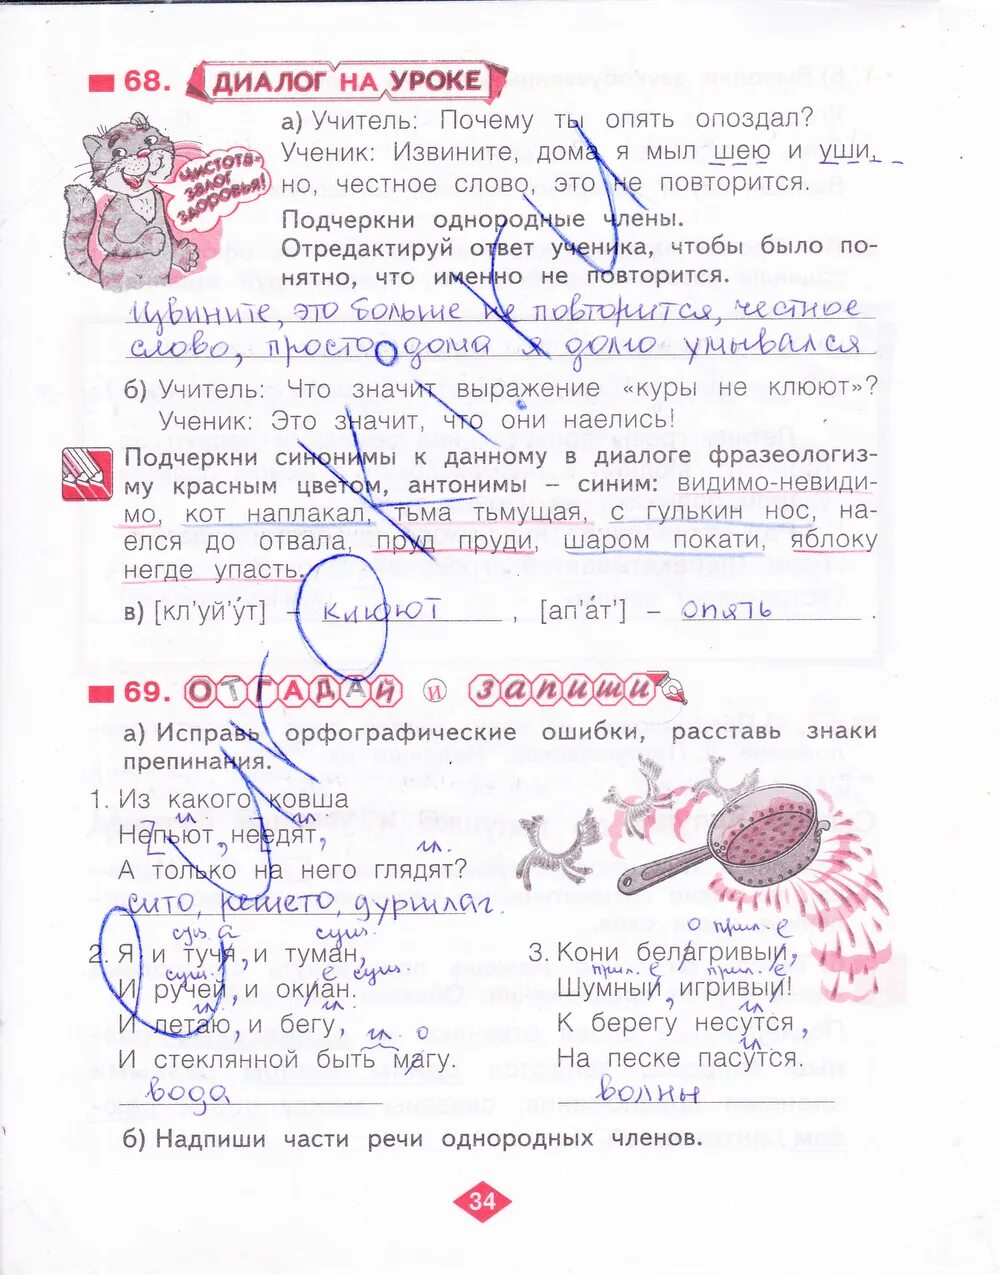 68. ДИАЛОГ НА УРОКЕ
а) Учитель: Почему ты опять опоздал?
Ученик: Извините, дома я мыл шею и уши,
но, честное слово, это не повторится.
Чистота-
залог
здоровья!
Подчеркни однородные члены.
Отредактируй ответ ученика, чтобы было по-
нятно, что именно не повторится.
Извините, это больше не повторится, честное
слово, просто дома я долго умывался
б) Учитель: Что значит выражение «куры не клюют»?
Ученик: Это значит, что они наелись!
Подчеркни синонимы к данному в диалоге фразеологиз-
му красным цветом, антонимы – синим: видимо-невиди-
мо, кот наплакал, тьма тьмущая, с гулькин нос, на-
елся до отвала, пруд пруди, шаром покати, яблоку
негде упасть.
в) [кл'уй'у́т] – клюют, [ап'а́т'] – опять.
69. ОТГАДАЙ И ЗАПИШИ
а) Исправь орфографические ошибки, расставь знаки
препинания.
1. Из какого ковша
гл. гл.
Непьют, неедят,
гл.
А только на него глядят?
сито, решето, дуршлаг.
сущ. а сущ.
2. Я и тучя, и туман,
сущ. е сущ.
И ручей, и окиан.
гл. гл.
И летаю, и бегу,
гл. о
И стеклянной быть магу.
вода
о прил. е
3. Кони белагривыи,
прил. е прил. е
Шумныи, игривыи!
гл.
К берегу несутся,
гл.
На песке пасутся.
волны
б) Надпиши части речи однородных членов.
34